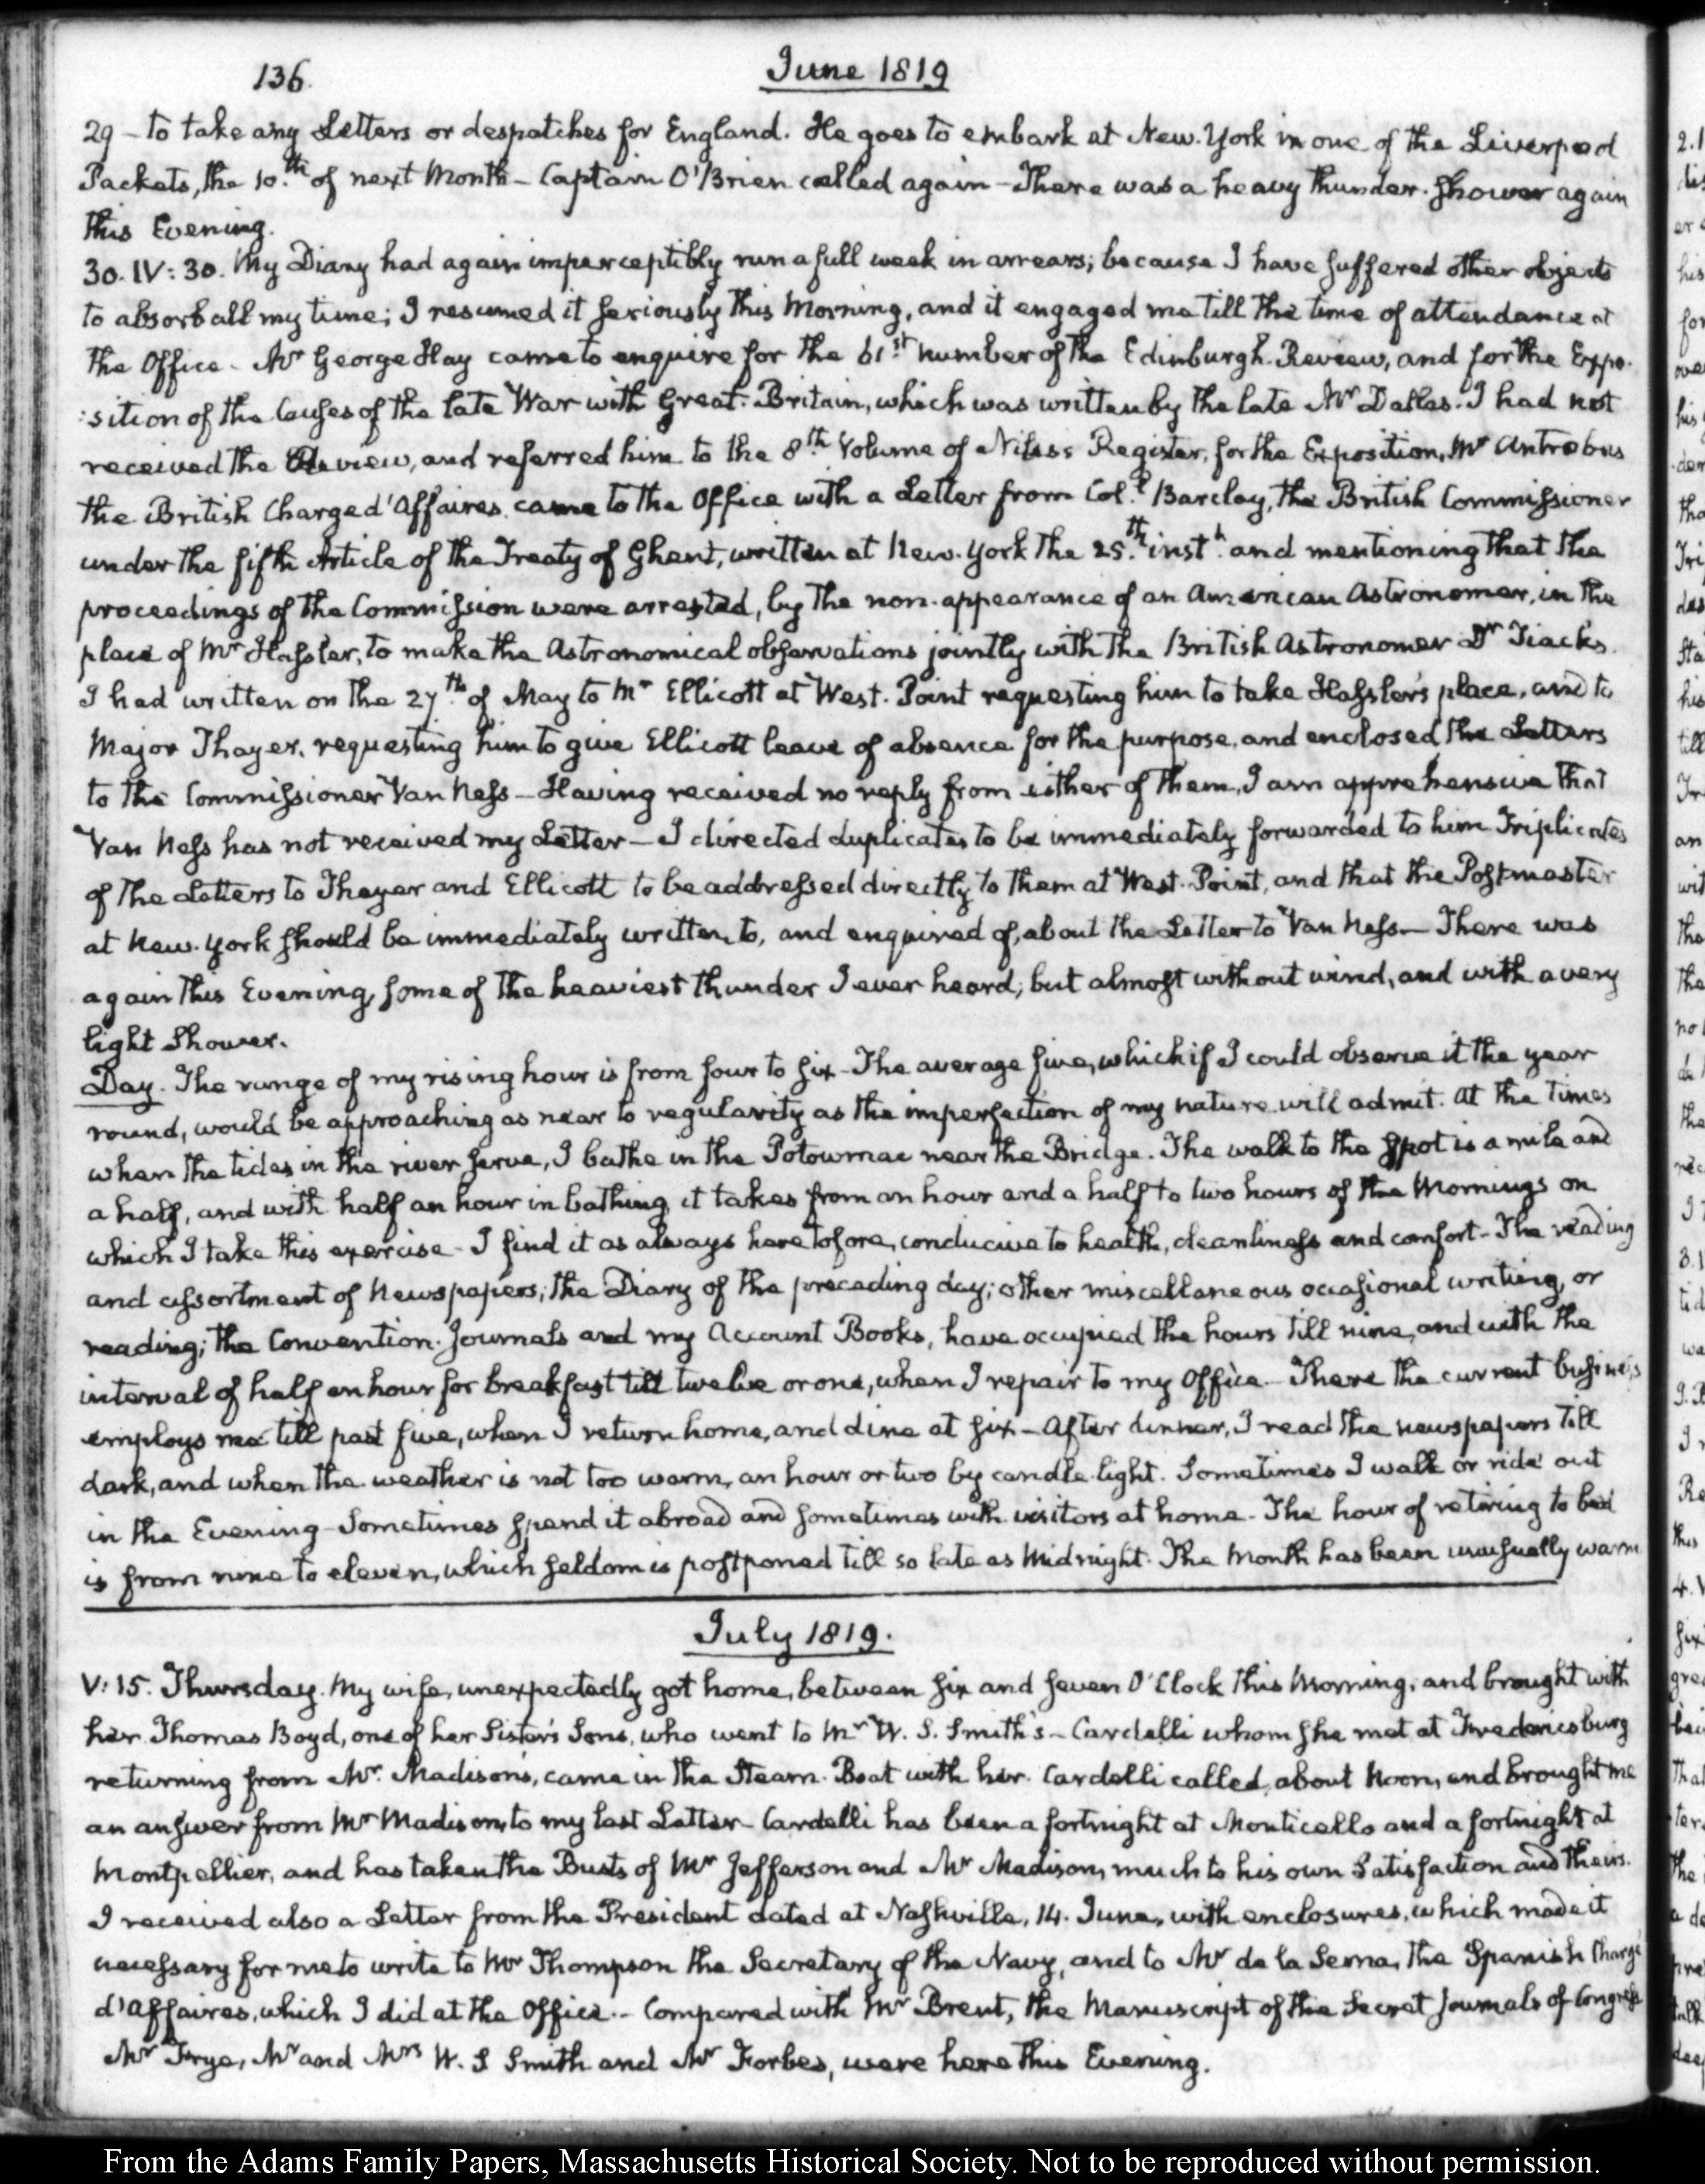 136.
June 1819
29 - to take any Letters or despatches for England. He goes to embark at New-York in one of the Liverpool
Packets, the 10.th of next Month - Captain O'Brien called again - There was a heavy thunder-shower again
this Evening.
30. IV: 30. My Diary had again imperceptibly run a full week in arrears; because I have suffered other objects
to absorb all my time; I resumed it seriously this Morning, and it engaged me till the time of attendance at
the Office - Mr George Hay came to enquire for the 61st number of the Edinburgh Review, and for the Expo-
:sition of the Causes of the late War with Great-Britain, which was written by the late Mr Dallas. I had not
received the Review, and referred him to the 8th Volume of Niles's Register, for the Exposition, Mr Antrobus
the British Charged'Affaires came to the Office with a Letter from Col.l Barclay, the British Commissioner
under the fifth Article of the Treaty of Ghent, written at New-York the 25.th inst.t and mentioning that the
proceedings of the Commission were arrested, by the non-appearance of an American Astronomer, in the
place of Mr Hassler, to make the Astronomical observations jointly with the British Astronomer Dr Tiarks.
I had written on the 27.th of May to Mr Ellicott at West-Point requesting him to take Hassler's place, and to
Major Thayer, requesting him to give Ellicott leave of absence for the purpose, and enclosed the Letters
to the Commissioner Van Ness - Having received no reply from either of them, I am apprehensive that
Van Ness has not received my Letter - I directed duplicates to be immediately forwarded to him Triplicates
of the Letters to Thayer and Ellicott to be addressed directly to them at West-Point, and that the Postmaster
at New-York should be immediately written to, and enquired of, about the Letter to Van Ness - There was
again this Evening, some of the heaviest thunder I ever heard; but almost without wind, and with a very
light Shower.
Day. The range of my rising hour is from four to six - The average five, which if I could observe it the year
round, would be approaching as near to regularity as the imperfection of my nature will admit. At the times
when the tides in the river serve, I bathe in the Potowmac near the Bridge. The walk to the spot is a mile and
a half, and with half an hour in bathing, it takes from an hour and a half to two hours of the Mornings on
which I take this exercise - I find it as always heretofore, conducive to health, cleanliness and comfort - The reading
and assortment of Newspapers; the Diary of the preceding day; other miscellaneous occasional writing, or
reading; the Convention-Journals and my Account Books, have occupied the hours till nine, and with the
interval of half an hour for breakfast till twelve or one, when I repair to my Office - There the current business
employs me till past five, when I return home, and dine at six - After dinner, I read the newspapers till
dark, and when the weather is not too warm, an hour or two by candle-light. Sometimes I walk or ride out
in the Evening - Sometimes spend it abroad and sometimes with visitors at home - The hour of retiring to bed
is from nine to eleven, which seldom is postponed till so late as Midnight. The Month has been unusually warm
July 1819.
V: 15. Thursday. My wife, unexpectedly got home, between six and seven O'Clock this Morning, and brought with
her Thomas Boyd, one of her Sister's Sons, who went to Mr W. S. Smith's - Cardelli whom she met at Fredericsburg
returning from Mr. Madison's, came in the Steam-Boat with her. Cardelli called about Noon, and brought me
an answer from Mr Madison, to my last Letter - Cardelli has been a fortnight at Monticello and a fortnight at
Montpellier, and has taken the Busts of Mr Jefferson and Mr Madison, much to his own Satisfaction and theirs.
I received also a Letter from the President dated at Nashville, 14. June, with enclosures, which made it
necessary for me to write to Mr Thompson the Secretary of the Navy, and to Mr de la Serna, the Spanish Chargé
d'Affaires, which I did at the Office - Compared with Mr Brent, the Manuscript of the Secret Journals of Congress
Mr Frye, Mr and Mrs W. S Smith and Mr Forbes, were here this Evening.
From the Adams Family Papers, Massachusetts Historical Society. Not to be reproduced without permission.